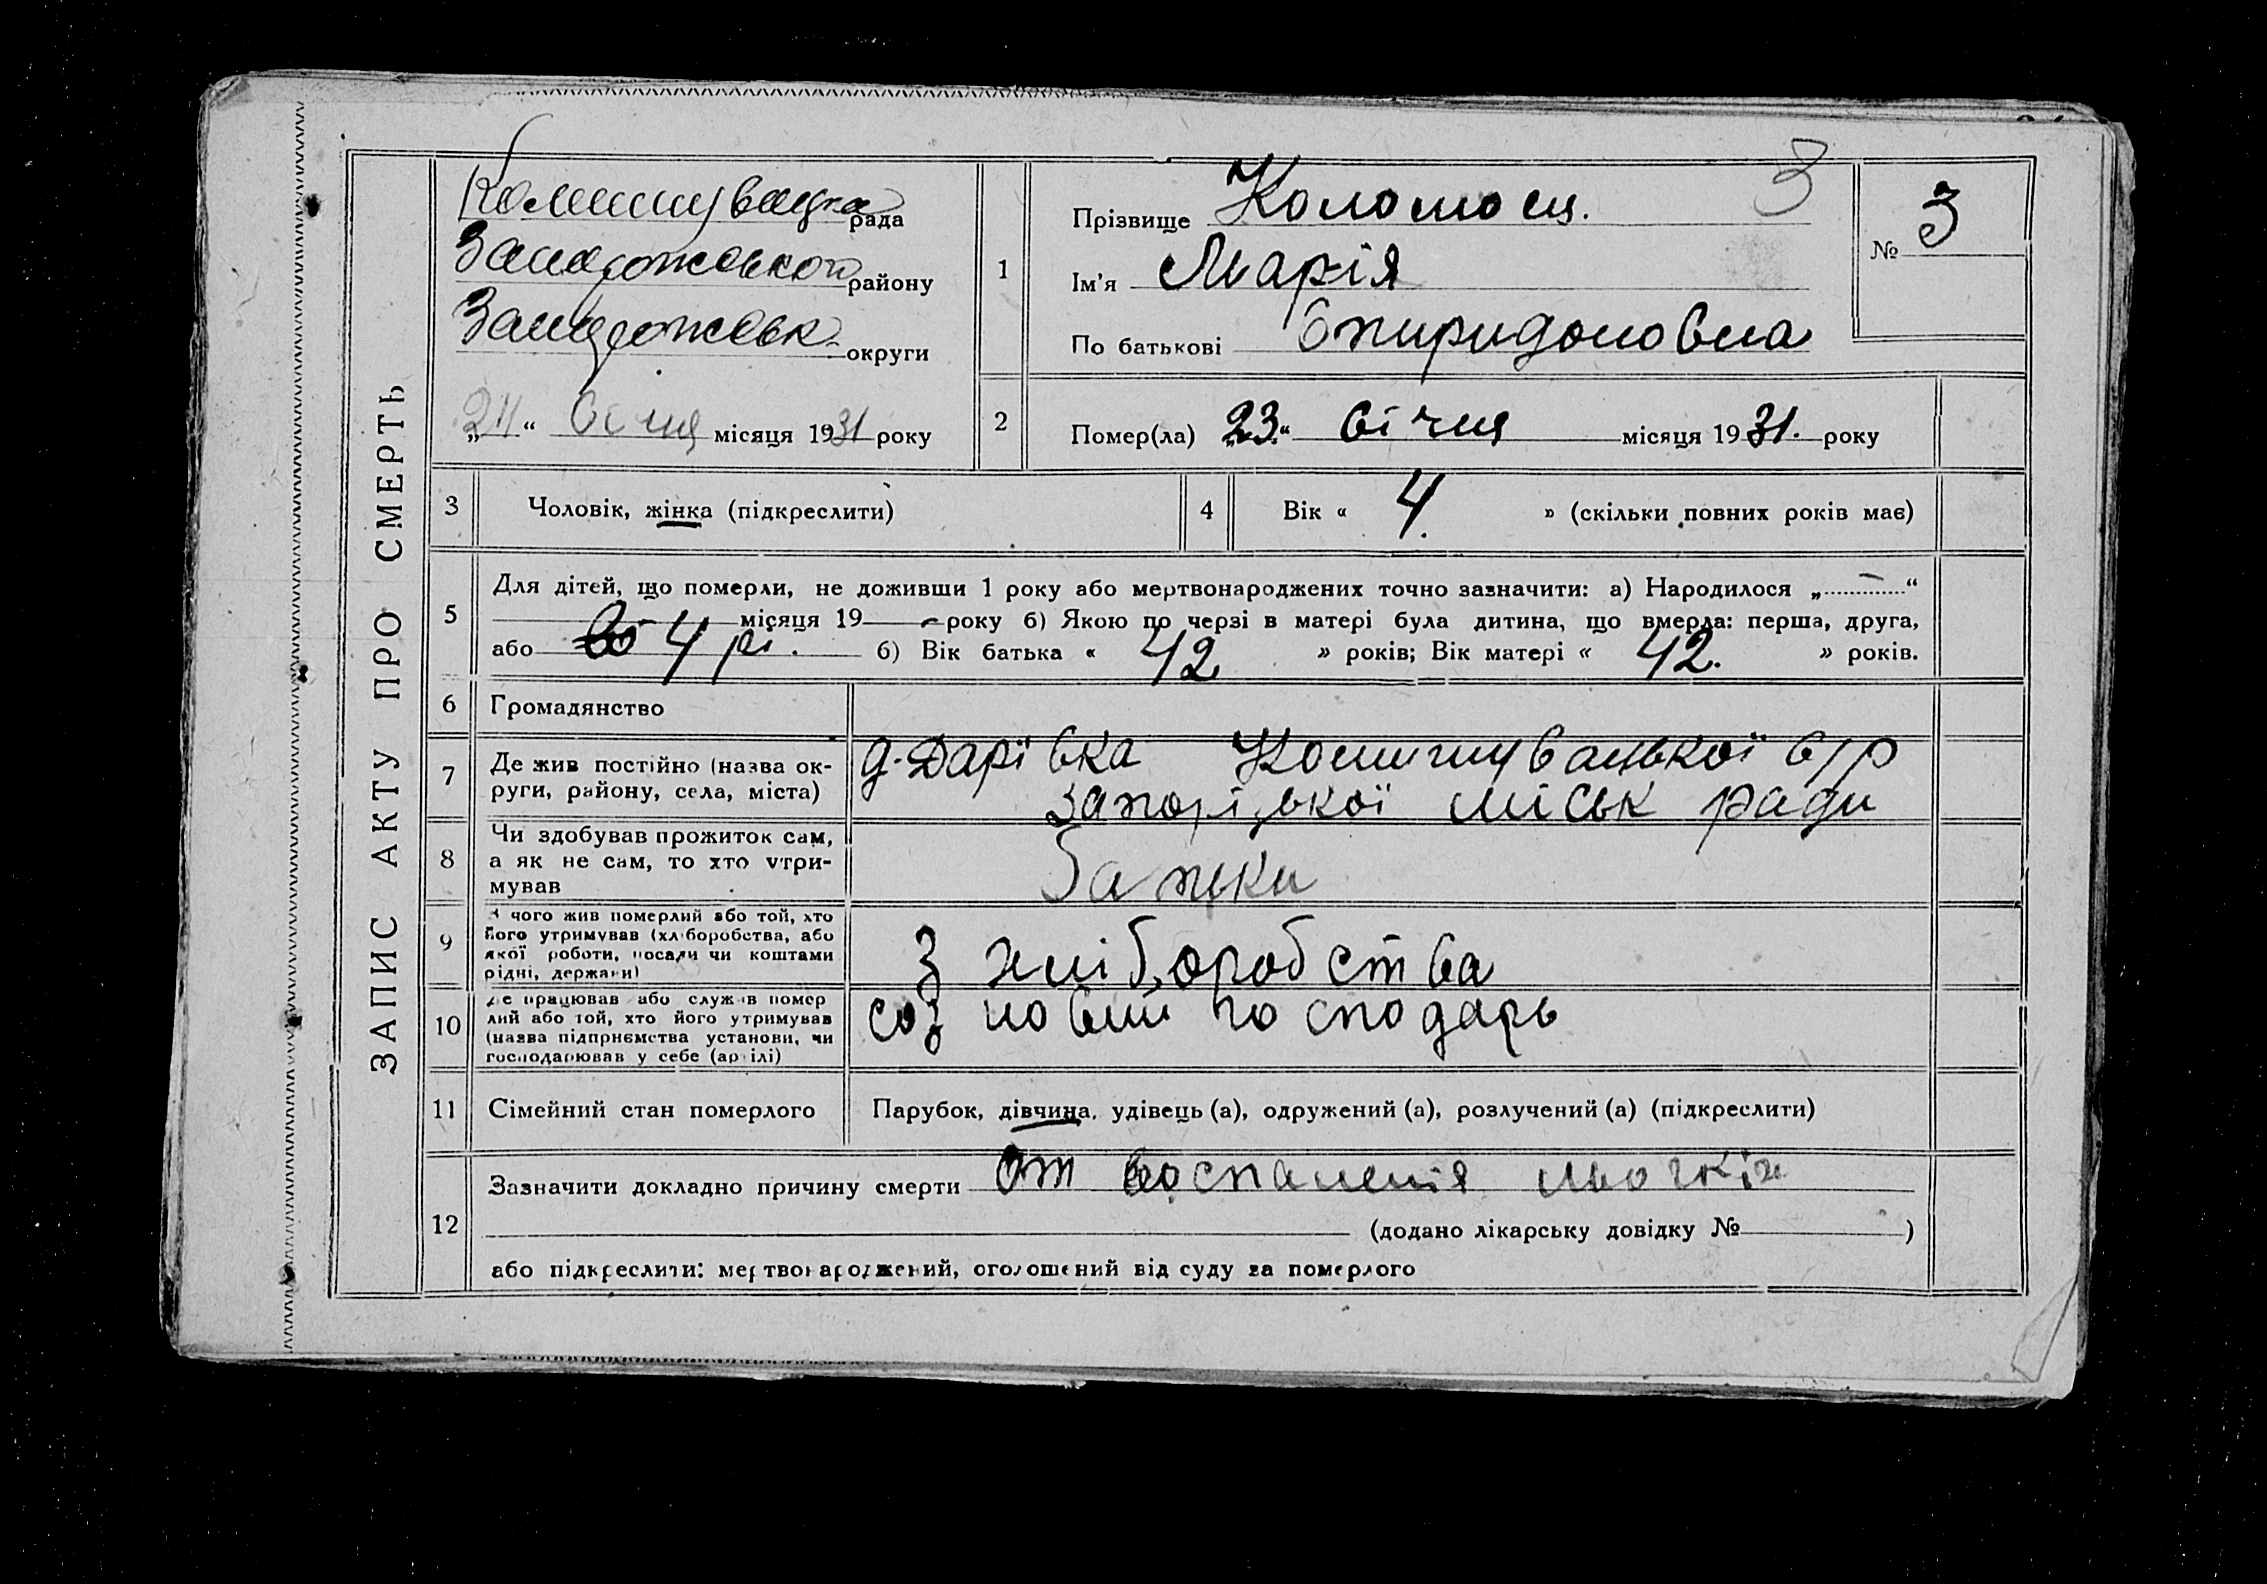 ЗАПИС АКТУ ПРО СМЕРТЬ
Комишувацка рада
Запорожського району
Запорожськ округи
„24“ січня місяця 1931 року
1
Прізвище Коломоец.
3
№ 3
Ім'я Марія
По батькові Спиридоновна
2
Помер(ла) 23“ січня місяця 1931. року
3 Чоловік, жінка (підкреслити)
4 Вік « 4. » (скільки повних років має)
5
Для дітей, що померли, не доживши 1 року або мертвонароджених точно зазначити: а) Народилося „ — “
місяця 19 — року б) Якою по черзі в матері була дитина, що вмерла: перша, друга,
або 4 рі. б) Вік батька « 42 » років; Вік матері « 42. » років.
6 Громадянство
7 Де жив постійно (назва ок-
руги, району, села, міста)
д. Дарівка Комишувацької с/р
Запоріцької міськ ради
8 Чи здобував прожиток сам,
а як не сам, то хто утри-
мував
Батьки
9 З чого жив померлий або той, хто
його утримував (хліборобства, або
якої роботи, посади чи коштами
рідні, держави)
З хліборобства
10 Де працював або служив помер
лий або той, хто його утримував
(назва підприємства установи, чи
господарював у себе (артілі)
созновий господарь
11 Сімейний стан померлого
Парубок, дівчина, удівець (а), одружений (а), розлучений (а) (підкреслити)
12
Зазначити докладно причину смерти от воспаленія льогкіх
(додано лікарську довідку № )
або підкреслити: мертвонароджений, оголошений від суду за померлого